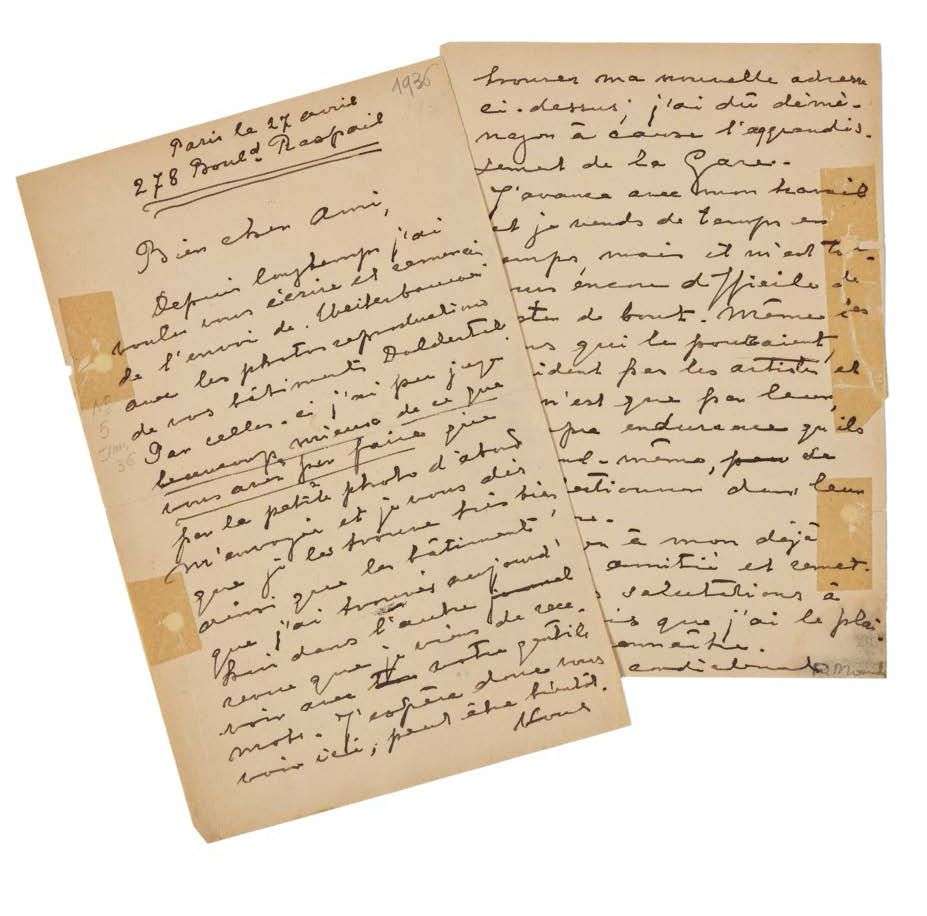 1936
Paris le 27 avril
278 Bould. Raspail
Bien cher Ami,
Depuis longtemps j'ai
voulu vous écrire et remercier
de l'envoi de
avec les photos reproductions
de vos bâtiments
Par celles-ci j'ai pu juger
beaucoup mieux de ce que
vous avez pu faire que
par la petite photo d'abord
m'envoyée et je vous dis
que je les trouve très bien
ainsi que les bâtiments,
que j'ai trouvés aujourd'
hui dans l'autre journal
revue que je viens de rece-
voir avec votre gentils
mots. J'espère donc vous
voir ici, peut être bientôt.
Vous
No
5
36
trouvez ma nouvelle adresse
ci-dessus; j'ai dû démé-
nager à cause l'aggrandis-
sement de la Gare.
J'avance avec mon travail
et je vends de temps en
temps, mais il m'est
encore difficile de
de bout. Même les
qui le pouvaient,
par les artistes et
n'est que par leur
endurance qu'ils
même, peu de
dans leur
à mon déjà
amitié et remet-
salutations à
que j'ai le plai-